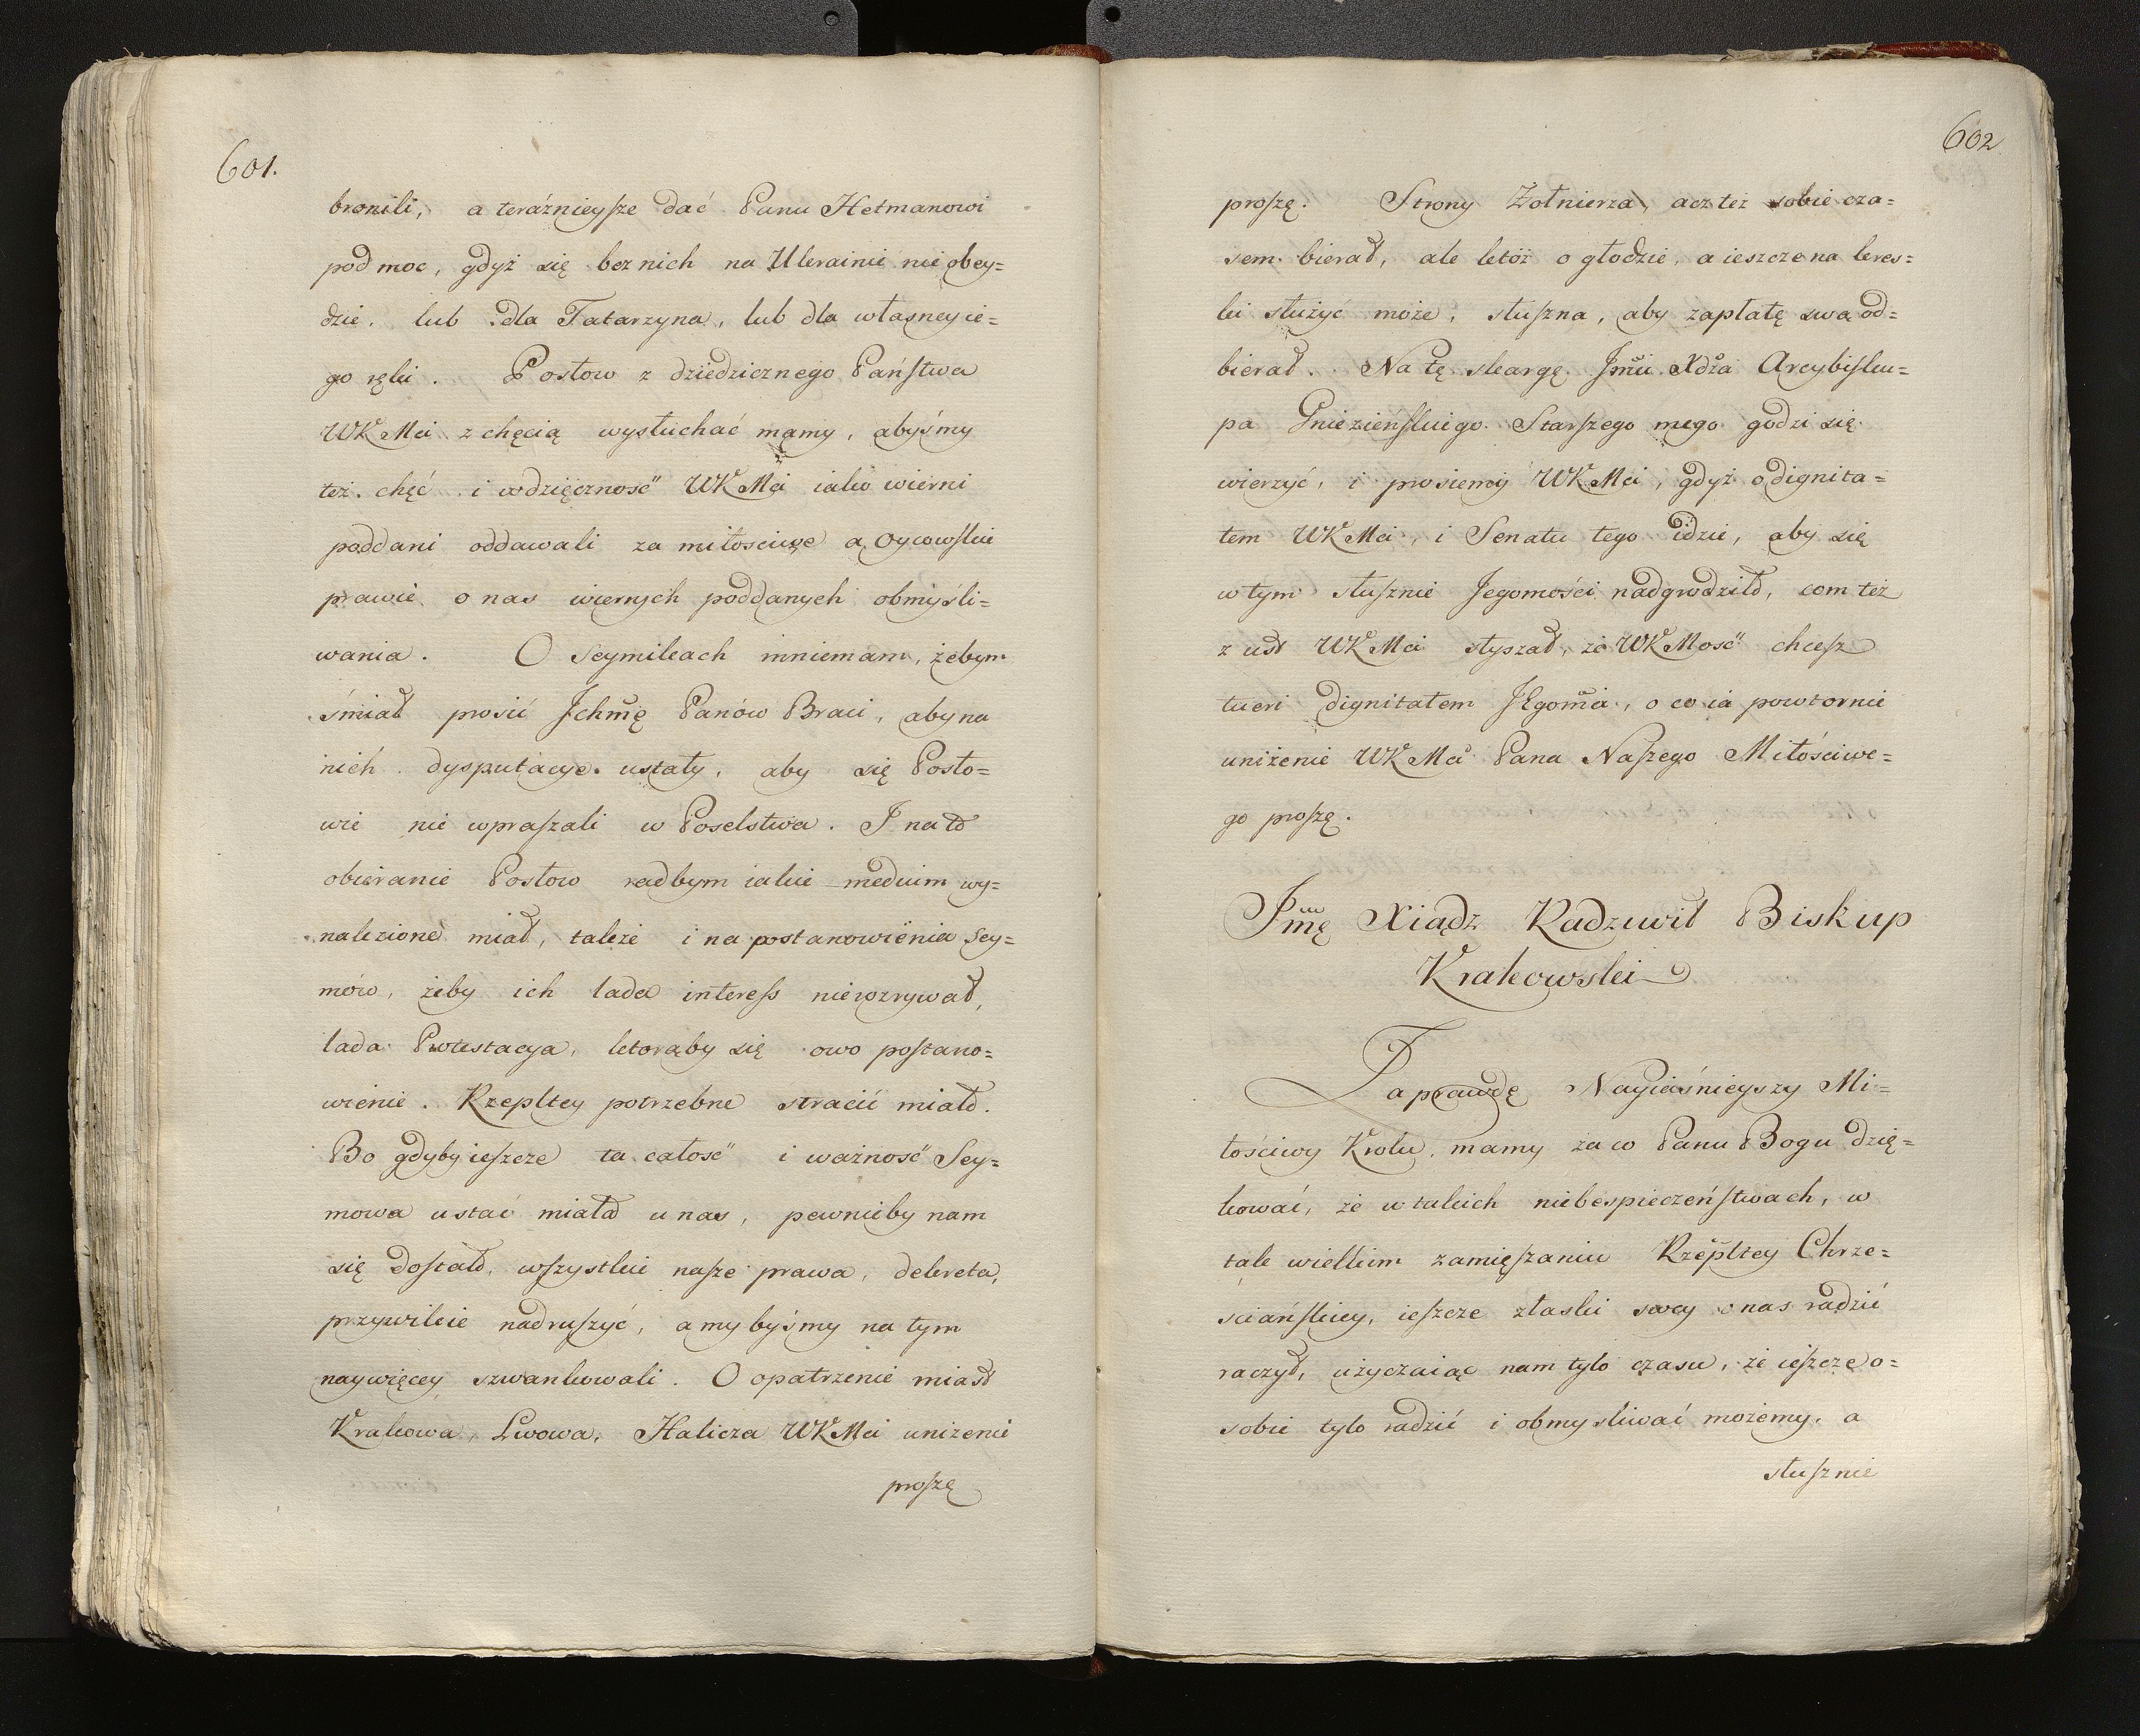 601.
bronili, a teráznieysze dać Panu Hetmanowi
pod moc, gdyż się bez nich na Ukrainie nie obey=
dzie. lub dla Tatarzyna, lub dla własney ie=
go ręki. Posłow z dziedzicznego Państwa
WKMci z chęcią wysłuchać mamy, abyśmy
też chęć i wdzięczność WKMci iako wierni
poddani oddawali za miłościwe a Oycowskie
prawie o nas wiernych poddanych obmyśli=
wania. O Seymikach mniemam, żebym
śmiał prosić Ichmę Panów Braci, aby na
nich dysputacye ustały, aby się Posło=
wie nie wpraszali w Poselstwa. I na to
obieranie Posłow radbym iakie medium wy=
nalezione miał, także i na postanowienia Sey=
mów, żeby ich lada interess nierozrywał,
lada Protestacya, ktorąby się owo postano=
wienie Rzepltey potrzebne stracić miało.
Bo gdyby ieszcze ta całość i ważność Sey=
mowa ustać miała u nas, pewnieby nam
się dostało, wszystkie nasze prawa, dekreta,
przywileie nadruszyć, a my byśmy na tym
naywięcey szwankowali. O opatrzenie miast
Krakowa, Lwowa, Halicza WKMci uniżenie
proszę
602
proszę. Strony Żołnierza, acz też sobie cza=
sem bierał, ale ktoż o głodzie, a ieszcze na kres=
ki służyć może, słuszna, aby zapłatę swa od=
bierał. Na tę skargę Jmci Xdza Arcybisku=
pa Gnieznieńskiego Starszego mego godzi się
wierzyć, i prosiemy WKMci, gdyż o dignita=
tem WKMci, i Senatu tego idzie, aby się
w tym słusznie Jegomości nadgrodziło, com też
z ust WKMci słyszał, że WKMość chcesz
tueri dignitatem JEgomci, o co ia powtornie
uniżenie WKMci Pana Naszego Miłościwe=
go proszę.
Jmę Xiądz Radziwił Biskup
Krakowski
Zaprawdę Nayiaśnieyszy Mi=
łościwy Krolu, mamy za co Panu Bogu dzię=
kować, że w takich niebespieczeństwach, w
tak wielkim zamięszaniu Rzepltey Chrze=
sciańskiey, ieszcze złaski swey o nas radzić
raczył, użyczaiąc nam tylo czasu, że ieszcze o=
sobie tylo radzić i obmysliwać możemy, a
słusznie